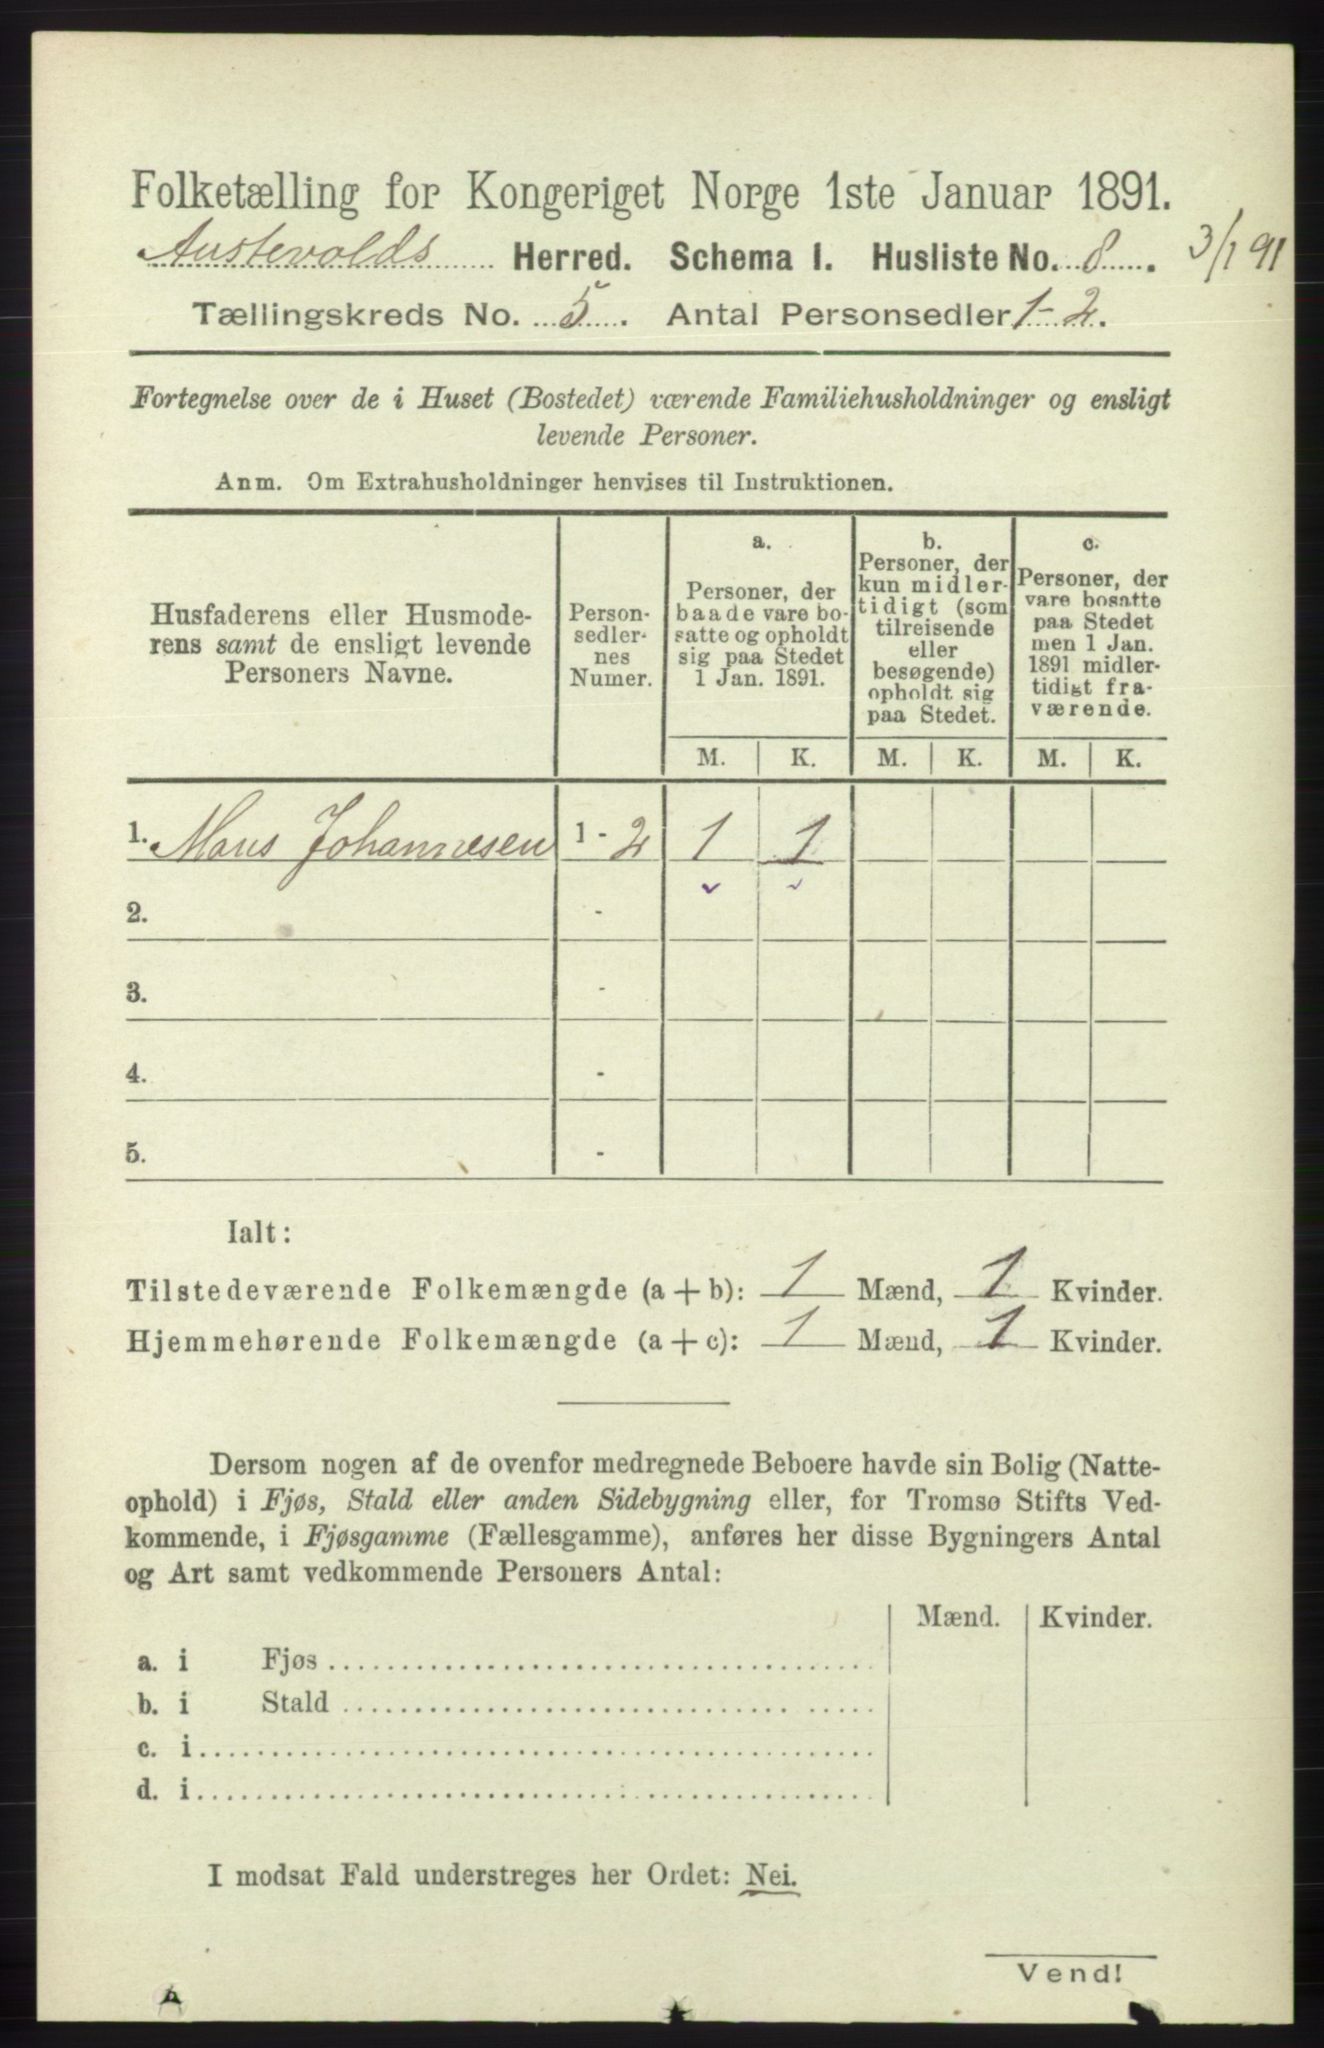 Folketælling for Kongeriget Norge 1ste Januar 1891.
Austevolds Herred. Schema I. Husliste No. 8. 3/1 91
Tællingskreds No. 5. Antal Personsedler 1-2.
Fortegnelse over de i Huset (Bostedet) værende Familiehusholdninger og ensligt
levende Personer.
Anm. Om Extrahusholdninger henvises til Instruktionen.
Husfaderens eller Husmode-
rens samt de ensligt levende
Personers Navne.
Person-
sedler-
nes
Numer.
a.
Personer, der
baade vare bo-
satte og opholdt
sig paa Stedet
1 Jan. 1891.
b.
Personer, der
kun midler-
tidigt (som
tilreisende
eller
besøgende)
opholdt sig
paa Stedet.
c.
Personer, der
vare bosatte
paa Stedet
men 1 Jan.
1891 midler-
tidigt fra-
værende.
M. K. M. K. M. K.
1. Mons Johannesen 1 - 2 1 1
2. -
3. -
4. -
5. -
Ialt:
Tilstedeværende Folkemængde (a + b): 1 Mænd, 1 Kvinder.
Hjemmehørende Folkemængde (a + c): 1 Mænd, 1 Kvinder.
Dersom nogen af de ovenfor medregnede Beboere havde sin Bolig (Natte-
ophold) i Fjøs, Stald eller anden Sidebygning eller, for Tromsø Stifts Ved-
kommende, i Fjøsgamme (Fællesgamme), anføres her disse Bygningers Antal
og Art samt vedkommende Personers Antal:
Mænd. Kvinder.
a. i Fjøs
b. i Stald
c. i
d. i
I modsat Fald understreges her Ordet: Nei.
Vend!